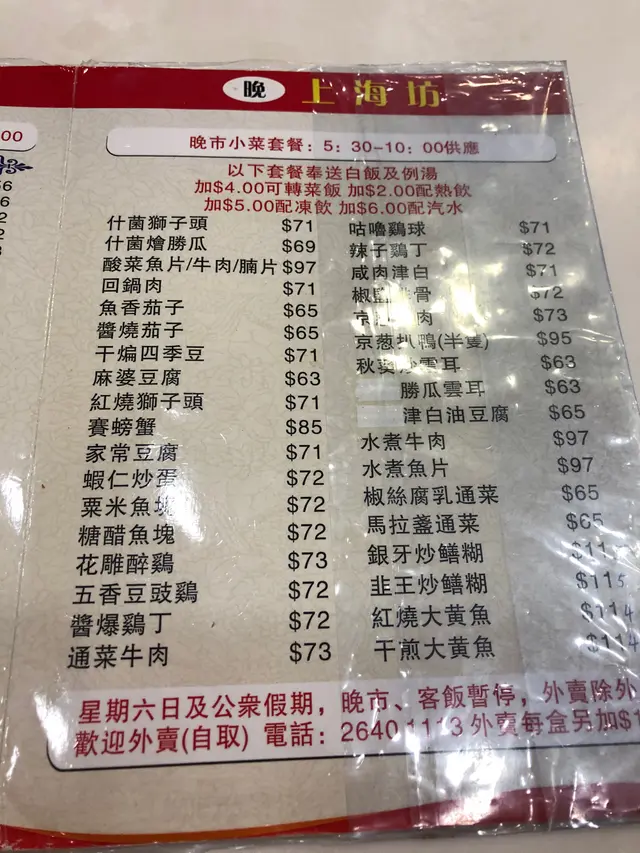 晚 上海坊
00
晚市小菜套餐：5：30-10：00供應
以下套餐奉送白飯及例湯
加$4.00可轉菜飯 加$2.00配熱飲
加$5.00配凍飲 加$6.00配汽水
什菌獅子頭 $71
什菌燴勝瓜 $69
酸菜魚片/牛肉/腩片 $97
回鍋肉 $71
魚香茄子 $65
醬燒茄子 $65
干煸四季豆 $71
麻婆豆腐 $63
紅燒獅子頭 $71
賽螃蟹 $85
家常豆腐 $71
蝦仁炒蛋 $72
粟米魚塊 $72
糖醋魚塊 $72
花雕醉鷄 $73
五香豆豉鷄 $72
醬爆鷄丁 $72
通菜牛肉 $73
咕嚕鷄球 $71
辣子鷄丁 $72
咸肉津白 $71
椒鹽排骨 $72
京 肉 $73
京葱扒鴨(半隻) $95
秋葵炒雲耳 $63
勝瓜雲耳 $63
津白油豆腐 $65
水煮牛肉 $97
水煮魚片 $97
椒絲腐乳通菜 $65
馬拉盞通菜 $65
銀牙炒鱔糊
韭王炒鱔糊 $115
紅燒大黃魚 $114
干煎大黃魚 $114
星期六日及公衆假期，晚市、客飯暫停，外賣除外
歡迎外賣(自取) 電話：2640 1113 外賣每盒另加$1